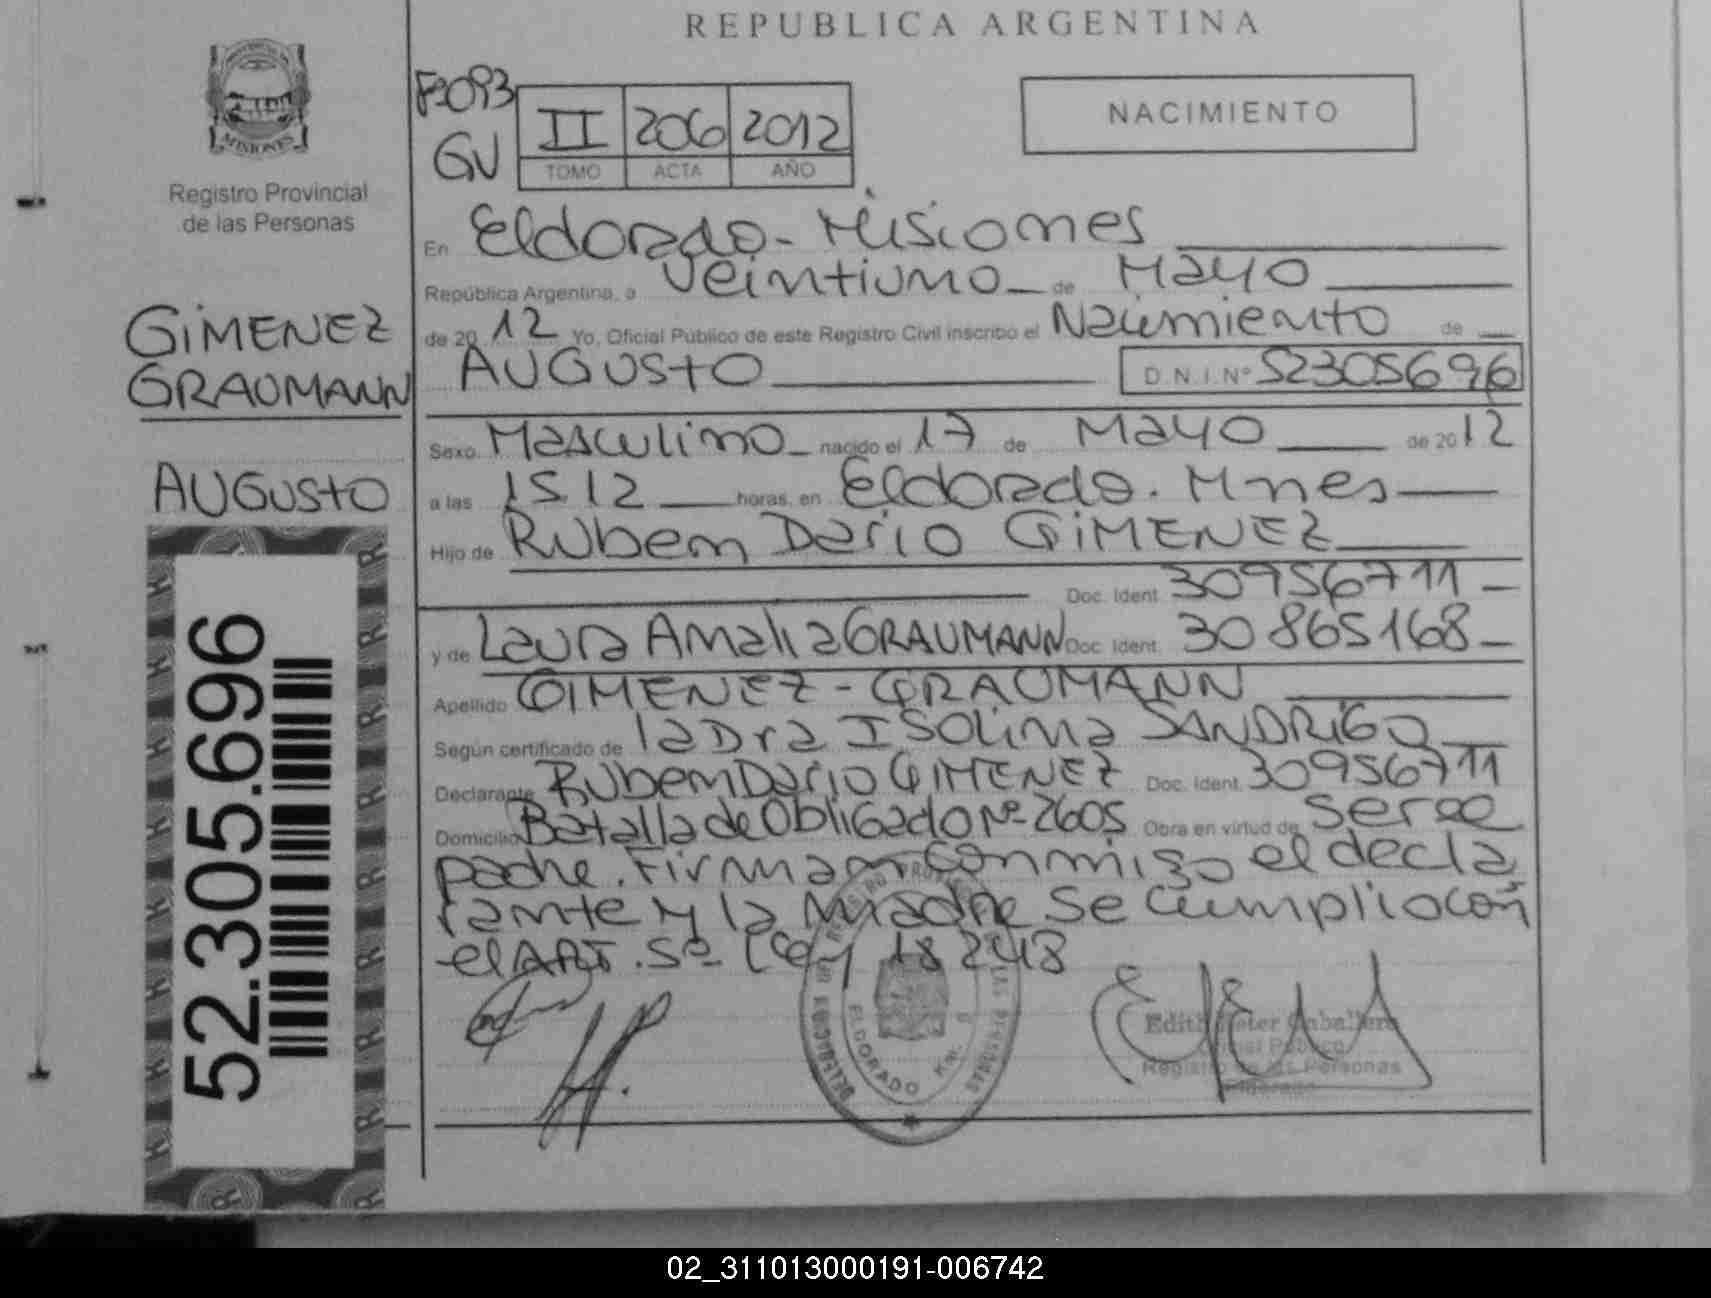 REPUBLICA ARGENTINA
MISIONES
Registro Provincial
de las Personas
Fº093
GV
II 206 2012
TOMO ACTA AÑO
NACIMIENTO
GIMENEZ
GRAUMANN
AUGUSTO
52.305.696
En Eldorado - Misiones
República Argentina, a veintiuno de Mayo
de 2012 Yo, Oficial Público de este Registro Civil inscribo el Nacimiento de
AUGUSTO D.N.I.Nº 52305696
Sexo Masculino nacido el 17 de Mayo de 2012
a las 15.12 horas, en Eldorado. Mnes
Hijo de Ruben Dario GIMENEZ
Doc. Ident. 30956711
y de Laura Amalia GRAUMANN Doc. Ident. 30865168
Apellido GIMENEZ - GRAUMANN
Según certificado de la Dra ISOlina SANDRIGO
Declarante Ruben Dario GIMENEZ Doc. Ident. 30956711
Domicilio Batalla de Obligado Nº 2605 Obra en virtud de ser el
padre. Firman conmigo el decla
rante y la Madre Se cumplio con
el ART. 5º Ley 18248
ELDORADO Km. 9
Edith Ester Caballero
Oficial Público
Registro de las Personas
Eldorado
02_311013000191-006742